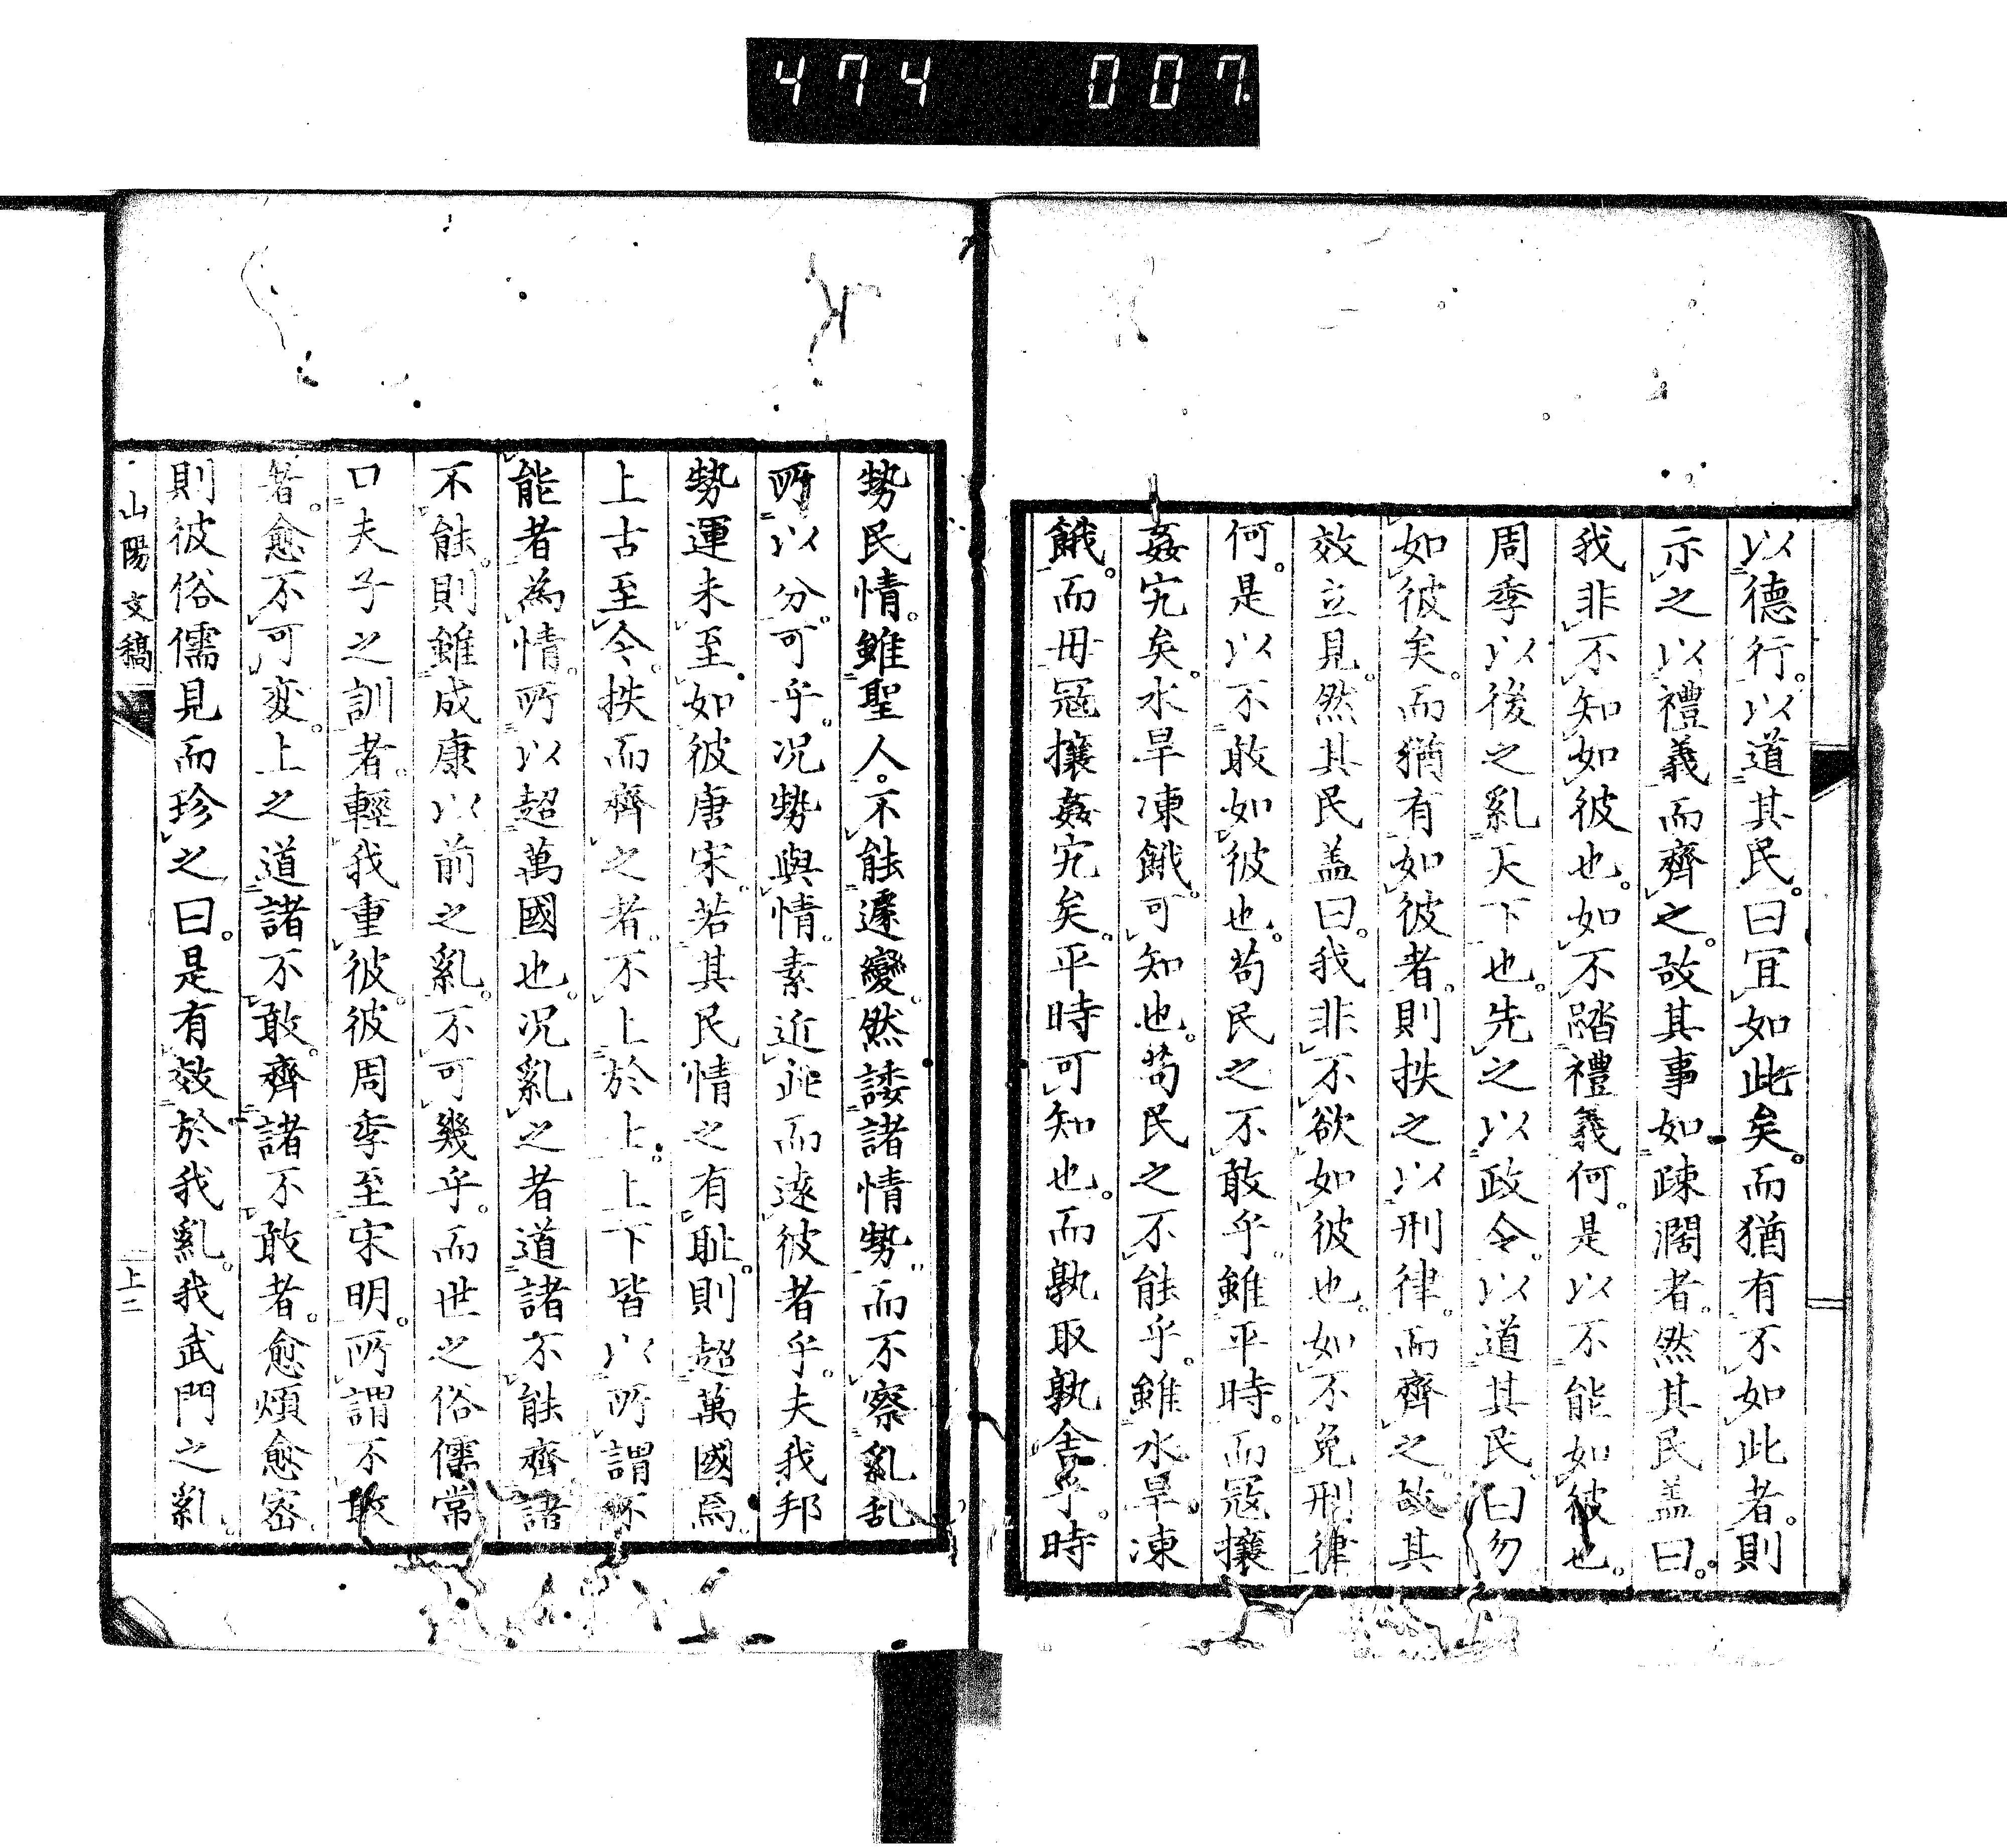 474 007
以德行。以道其民。曰宜如此矣。而猶有不如此者。則
示之以禮義而齊之。故其事如疎濶者。然其民盖曰。
我非不知如彼也。如不踏禮義何。是以不能如彼也。
周季以後之亂天下也。先之以政令。以道其民曰勿
如彼矣。而猶有如彼者。則抶之以刑律。而齊之。故其
效立見。然其民盖曰。我非不欲如彼也。如不免刑律
何。是以不敢如彼也。苟民之不敢乎。雖平時。而冦攘
姦宄矣。水旱凍餓。可知也。苟民之不能乎。雖水旱。凍
餓。而毋冦攘姦宄矣。平時可知也。而孰取孰舍乎。時
勢民情。雖聖人。不能遽變。然諉諸情勢。而不察亂乱
所以分。可乎。况勢與情。素近此而遠彼者乎。夫我邦
勢運未至。如彼唐宋。若其民情之有耻。則超萬國焉。
上古至今。抶而齊之者。不上於上。上下皆以所謂不
能者為情。所以超萬國也。况亂之者道諸不能齊諸
不能。則雖成康以前之亂。不可幾乎。而世之俗儒常
口夫子之訓者。輕我重彼。彼周季至宋明。所謂不敢
者。愈不可変。上之道諸不敢。齊諸不敢者。愈煩愈宻。
則彼俗儒見而珍之曰。是有效於我亂。我武門之亂。
山陽文稿
上二